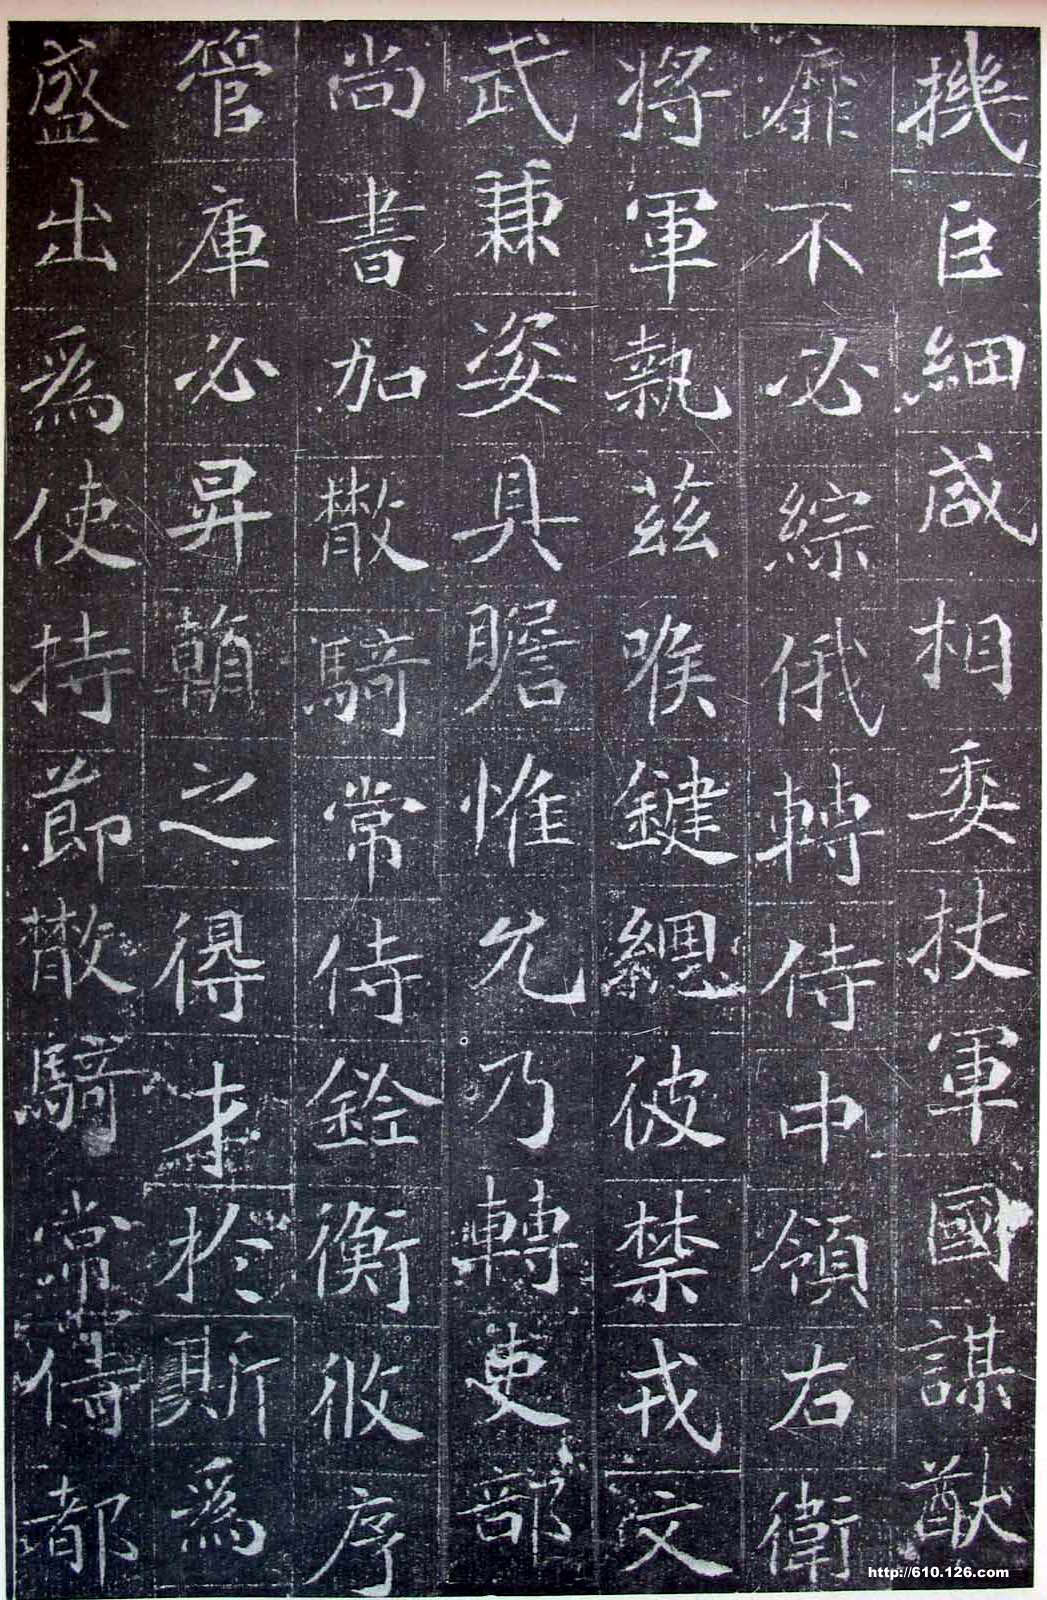 機巨細咸相委杖軍國謀猷
靡不必綜俄轉侍中領右衛
將軍執茲喉鍵總彼禁戎文
武兼姿具瞻惟允乃轉吏部
尚書加散騎常侍銓衡攸序
管庫必昇翰之得才於斯爲
盛出爲使持節散騎常侍都
http://610.126.com